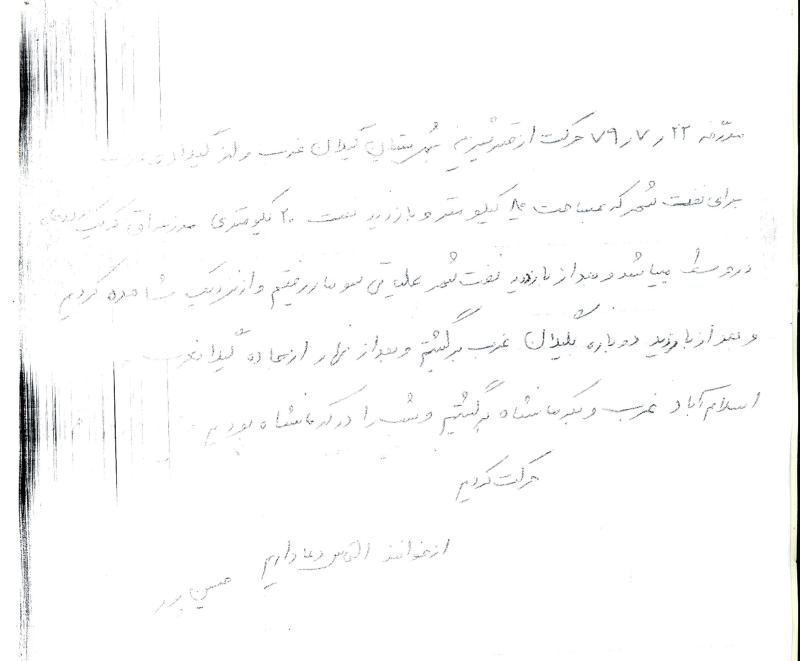 مورخه ۲۲ ر ۷ ر ۷۹ حرکت از قصر شیرین شهرستان گیلان غرب و از گیلان
برای نفت شهر که بمساحت ۸۰ کیلومتر و بازدید نفت ۲۰ کیلومتری
در وسط میباشد و بعد از بازدید نفت شهر عملیاتی رفتیم و از نزدیک مشاهده کردیم
و بعد از بازدید دوباره بگیلان غرب برگشتیم و بعد از نهار از جاده گیلانغرب
اسلام آباد غرب و بکرمانشاه برگشتیم و شب را در کرمانشاه بودیم
حرکت کردیم
از خواننده التماس دعا داریم
حسین